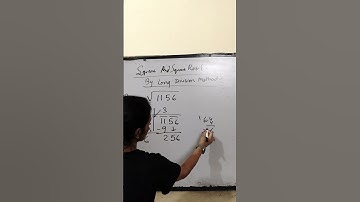 Square And Square Root
By Long Division Method
√1156
3
1156
-9
256
64